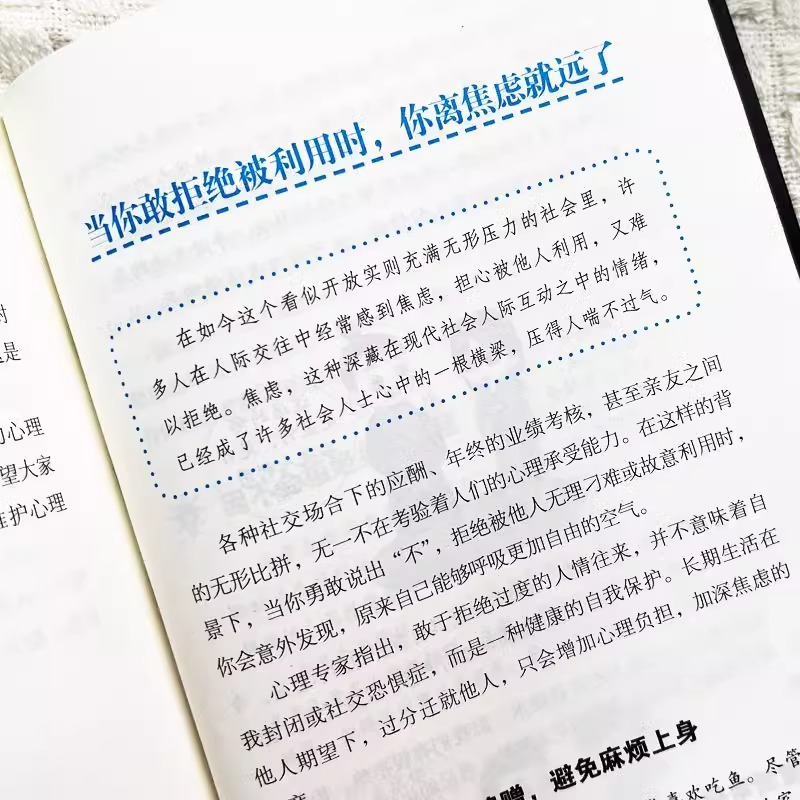 时
是
心理
望大家
维护心理
当你敢拒绝被利用时，你离焦虑就远了
在如今这个看似开放实则充满无形压力的社会里，许
多人在人际交往中经常感到焦虑，担心被他人利用，又难
以拒绝。焦虑，这种深藏在现代社会人际互动之中的情绪，
已经成了许多社会人士心中的一根横梁，压得人喘不过气。
各种社交场合下的应酬、年终的业绩考核，甚至亲友之间
的无形比拼，无一不在考验着人们的心理承受能力。在这样的背
景下，当你勇敢说出“不”，拒绝被他人无理刁难或故意利用时，
你会意外发现，原来自己能够呼吸更加自由的空气。
心理专家指出，敢于拒绝过度的人情往来，并不意味着自
我封闭或社交恐惧症，而是一种健康的自我保护。长期生活在
他人期望下，过分迁就他人，只会增加心理负担，加深焦虑的
赠，避免麻烦上身
喜欢吃鱼。尽管